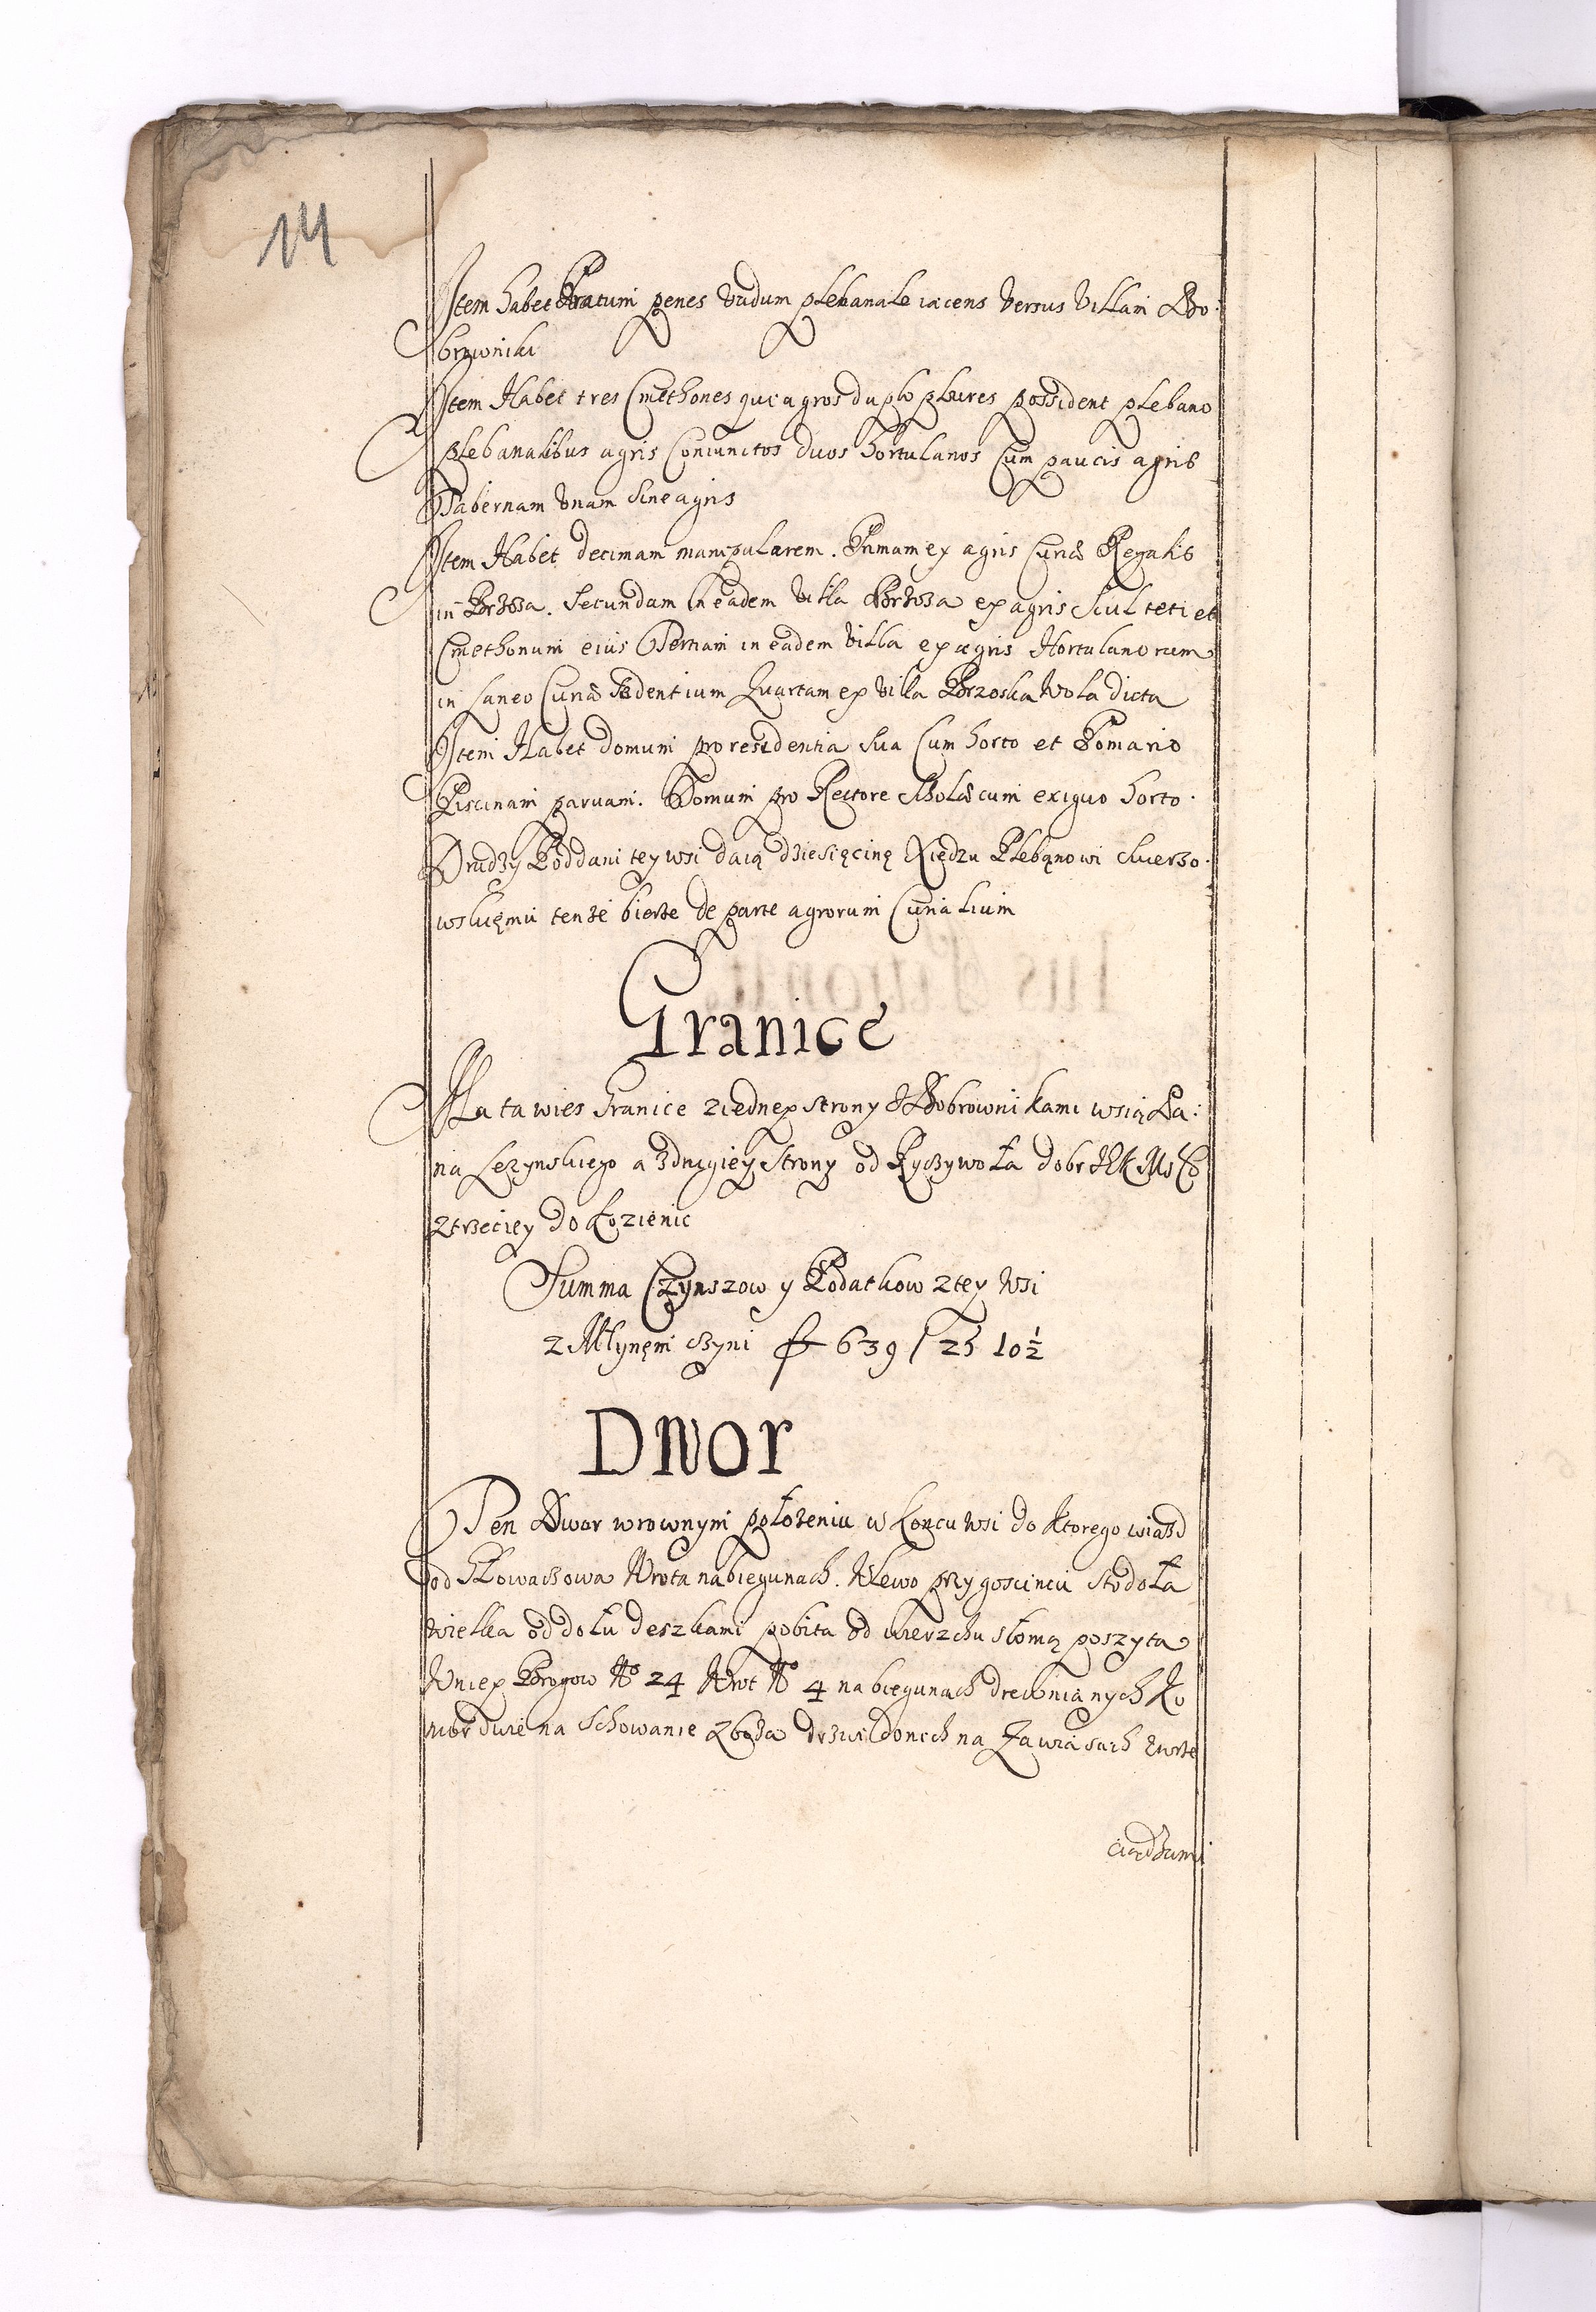 14
Item habet Pratum penes Vadum plebanale iacens Versus Villam Bo:
browniki
Item Habet tres Cmethones qui agros duplo plures possident plebano
plebanalibus agris Coniunctos duos hortulanos Cum paucis agris
Tabernam Vnam Sine agris
Item Habet decimam manipularem. Primam ex agris Curiæ Regalis
in Brzoza. Secundam in eadem Villa Brzoza ex agris Sculteti et
Cmethonum eius Tertiam in eadem Villa ex agris Hortulanorum
in Laneo Curiæ Sedentium Quartam ex Villa Brzoska Wola dicta
Item Habet domum pro residentia Sua Cum horto et Pomario
Piscinam paruam. Domum pro Rectore Scholæ cum exiguo horto.
Drudzy Poddani tey wsi daią dziesięcinę Xiędzu Plebąnowi Swierzo.
wskięmu tenże bierze de parte agrorum Curialium
Granice
Ma ta wies Granice z iedney Strony z Bobrownikami wsią Pa:
na Lezynskiego a z drugiey Strony od Ryczywoła dobr JKMsci
z trzeciey do Kozienic
Summa Czynszow y Podatkow z tey Wsi
z Młynęm czyni f 639 / 25 10 1/2
Dwor
Ten Dwor w rownym położeniu w Koncu Wsi do Ktorego wiazd
od Głowaczowa Wrota na biegunach. W lewo przy goscincu Stodoła
Wielka od dołu deszkami pobita od wierzchu słomą poszyta
W niey Brogow No 24 Wrot No 4 na biegunach drewnianych Ko
mor dwie na Schowanie zboża drzwi do nich na Zawiasach z wrze
ciądzami